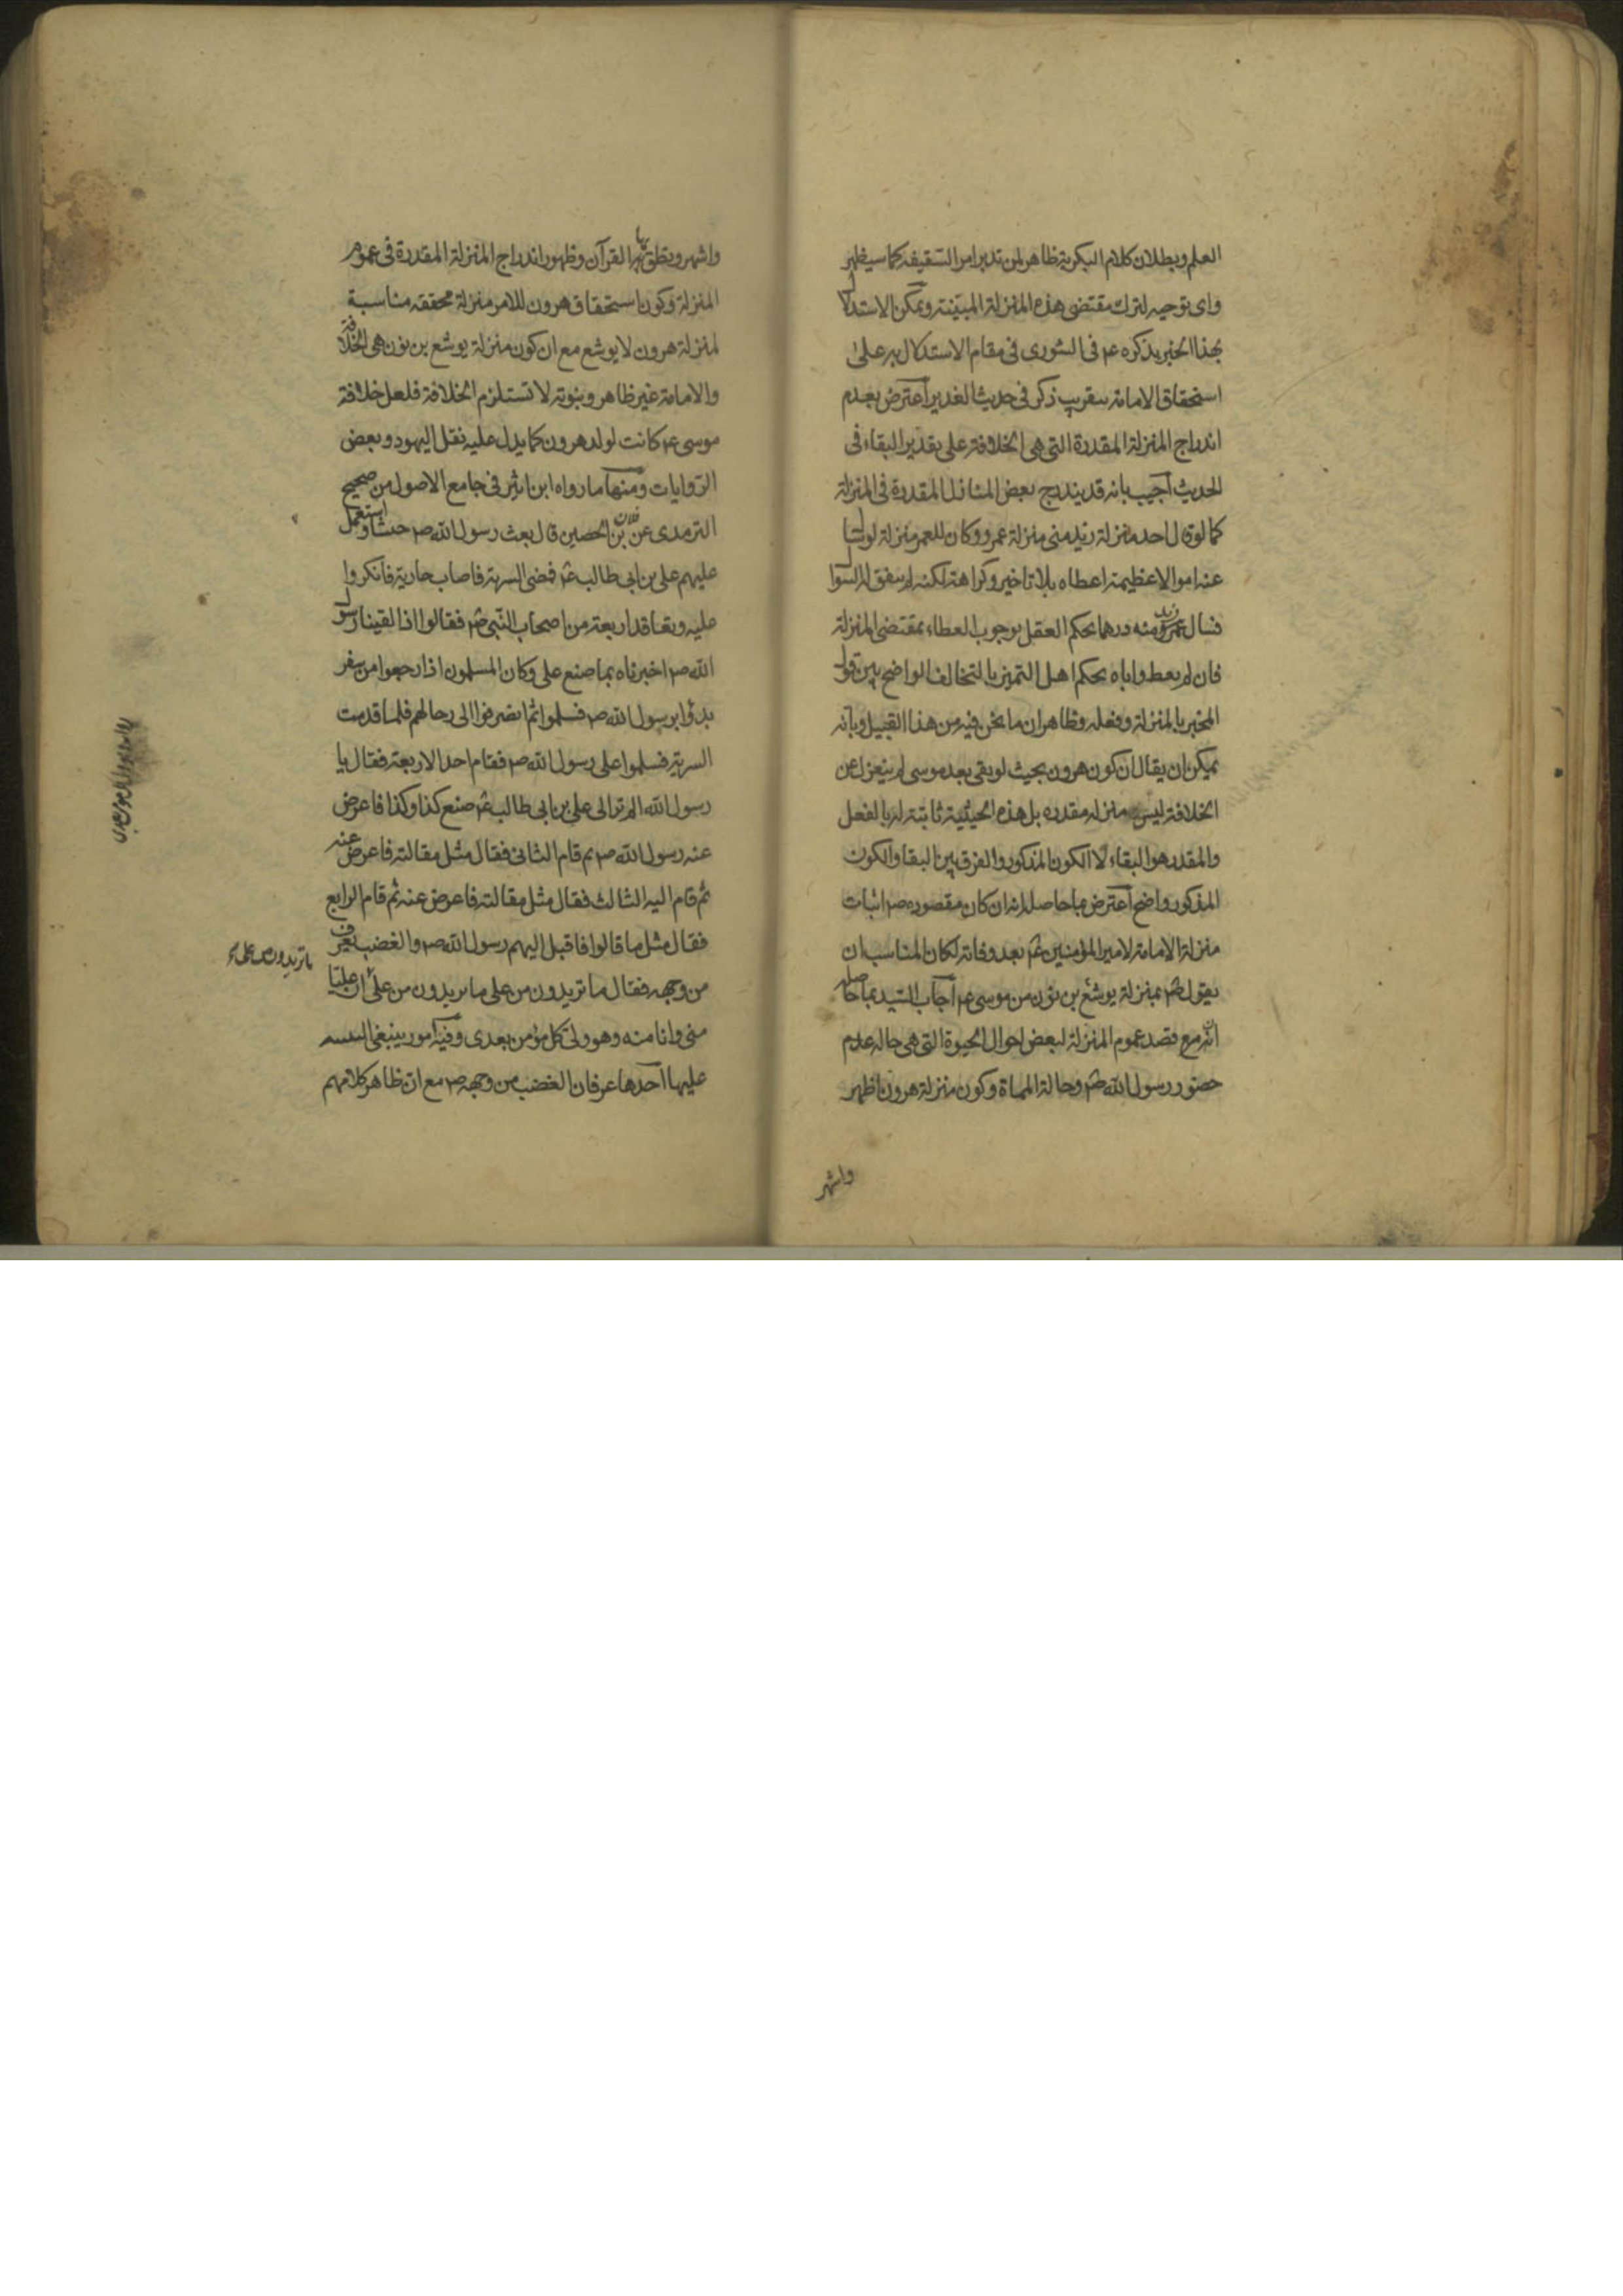 العلم وبطلان كلام البكرية ظاهر لمن تدبر امر السقيفه كما سيظهر
واى توجيه لترك مقتضى هذه المنزلة المبينة ويمكن الاستدلال
بهذا الخبر بذكره ع فى الشورى فى مقام الاستدلال به على
استحقاق الامامة بتقريب ذكر فى حديث الغدير اعترض بعدم
اندراج المنزلة المقدرة التى هى الخلافة على تقدير البقاء فى
الحديث اجيب بانه قد يندرج بعض المنازل المقدرة فى المنزلة
كما لو قال احد منزلة زيد منى منزلة عمرو وكان للعمر منزلة لو سال
عنه اموالا عظيمة اعطاه بلا تاخير وكراهة لكنه لم يتفق له السوال
فسال زيد منه درهما يحكم العقل بوجوب العطاء بمقتضى المنزلة
فان لم يعطه اياه يحكم اهل التميز بالتخالف الواضح بين قول
المخبر بالمنزلة وفعله وظاهر ان ما نحن فيه من هذا القبيل وبانه
يمكن ان يقال ان كون هرون بحيث لو بقى بعد موسى لم ينعزل عن
الخلافة ليس منزله مقدره بل هذه الحيثية ثابتة له بالفعل
والمقدر هو البقاء لا الكون المذكور والفرق بين البقا والكون
المذكور واضح اعترض بما حاصله انه ان كان مقصوره ص اثبات
منزلة الامامة لامير المؤمنين ع بعد وفاته لكان المناسب ان
يقول ص بمنزلة يوشع بن نون من موسى ع اجاب السيد بما حاصله
انه مع قصد عموم المنزلة لبعض احوال الحيوة التى هى حاله عدم
حضور رسول الله ص وحالة المماة وكون منزلة هرون اظهر
واشهر
واشهر ونطق بها القرآن وظهور اندراج المنزلة المقدرة فى عموم
المنزلة وكون استحقاق هرون للامر منزلة محققه مناسبة
لمنزلة هرون لا يوشع مع ان كون منزلة يوشع بن نون هى الخلافة
والامامة غير ظاهر ونبوته لا تستلزم الخلافة فلعل خلافة
موسى ع كانت لولد هرون كما يدل عليه نقل اليهود وبعض
الروايات ومنها ما رواه ابن اثير فى جامع الاصول من صحيح
الترمدى عن بن الحصين قال بعث رسول الله ص جيشا واستعمل
عليهم على بن ابى طالب ع فمضى السرية فاصاب جارية فانكروا
عليه وتعاقد اربعة من اصحاب النبى ص فقالوا اذا لقينا رسول
الله ص اخبرناه بما صنع على وكان المسلمون اذا رجعوا من سفر
بدؤا برسول الله ص فسلموا ثم انصرفوا الى رحالهم فلما قدمت
السرية فسلموا على رسول الله ص فقام احد الاربعة فقال يا
رسول الله الم تر الى على بن ابى طالب ع صنع كذا وكذا فاعرض
عنه رسول الله ص ثم قام الثانى فقال مثل مقالته فاعرض عنه
ثم قام اليه الثالث فقال مثل مقالته فاعرض عنه ثم قام الرابع
فقال مثل ما قالوا فاقبل اليهم رسول الله ص والغضب يعرف
من وجهه فقال ما تريدون من على ما تريدون من على ان عليا
منى وانا منه وهو ولى كل مؤمن بعدى وفيه امور ينبغى
عليها احدها عرفان الغضب من وجهه ص مع ان ظاهر كلامهم
ما تريدون من على